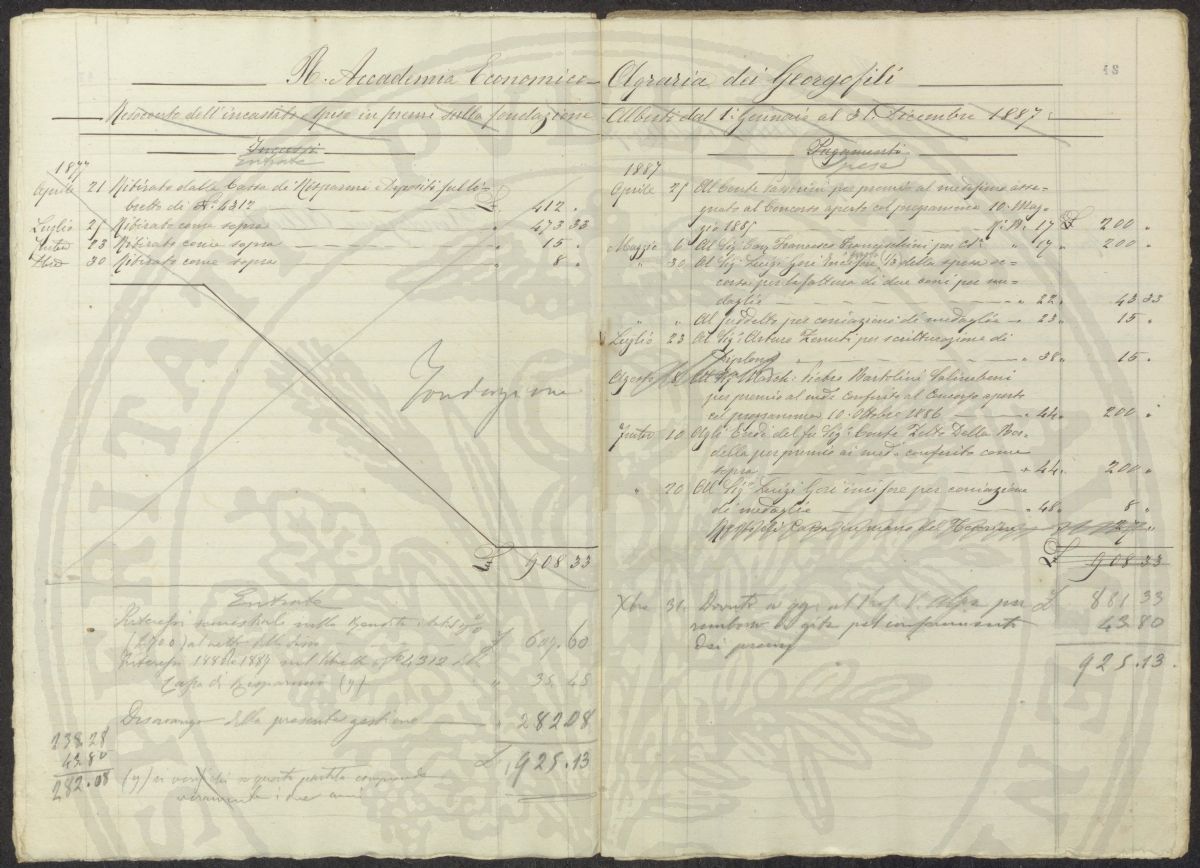 R. Accademia Economico-Agraria dei Georgofili
Resoconto dell'incassato e speso in premi sulla fondazione Alberti dal 1° Gennaio al 31 Dicembre 1887
Incassi
Entrata
1877
Aprile 21 Ritirato dalla Cassa di Risparmi e Depositi sul li-
bretto di N° 4312 £ 412 "
Luglio 25 Ritirato come sopra " 473 33
23 Ritirato come sopra " 15 "
30 Ritirato come sopra " 8 "
Fondazione
£ 908 33
Entrata
Interessi semestrali sulla rendita
(2700) al netto £ 607.60
Interessi 1886 e 1887 sul libretto N° 4312
Cassa di Risparmio (y) " 35.45
Disavanzo della presente gestione " 282.08
£ 925.13
238.28
43.80
282.08
(y) questa partita comprende
veramente i due anni
21
Pagamenti
Spese
1887
Aprile 25 Al Conte per premio al medesimo asse-
gnato al Concorso aperto col programma 10. Mag-
gio 1885 N. 17 £ 200 "
Maggio 6 Al Sig. Cav. Francesco Franceschini per Cs. " 17 " 200 "
" 30 Al Sig. Luigi Gori incisore 1/3 della spesa oc-
corsa per la fattura di due coni per me-
daglie " 22 " 43 33
" " Al suddetto per coniazione di medaglia " 23 " 15 "
Luglio 23 Al Sig. Arturo Zenuti per scritturazione di
Diplomi " 38 " 15 "
Agosto 8 Al Sig. March. Pietro Bartolini Salimbeni
per premio al med. conferito al Concorso aperto
col programma 10. Ottobre 1886 " 44 " 200 "
10 Agli Eredi del fu Sig. Conte Della Ro-
della per premio ai med. conferito come
sopra " 44 " 200 "
" 20 Al Sig. Luigi Gori incisore per coniazione
di medaglie " 48 " 8 "
Resto di Cassa in mano del Tesoriere 27 "
£ 908 33
Xbre 31. Dovuto a oggi al Prof. V. Alpe per £ 881 33
rimborso di gite pel conferimento 43.80
dei premi
925.13.